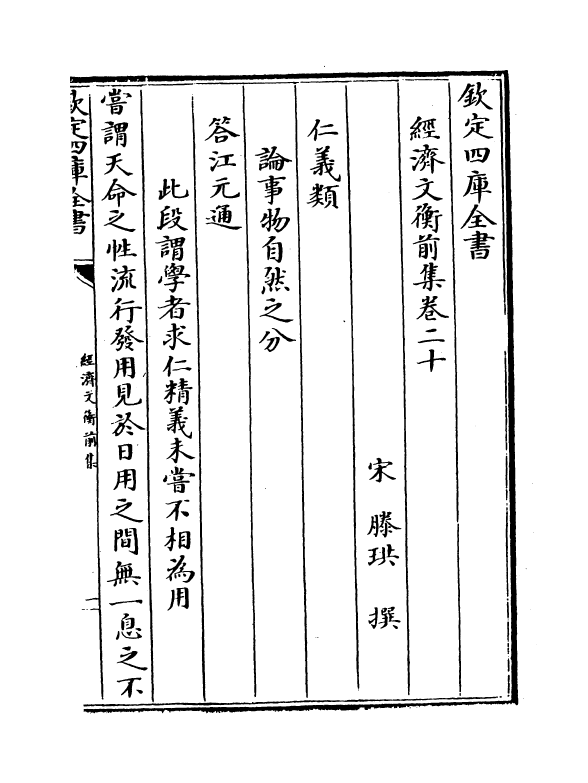 欽定四庫全書
經濟文衡前集卷二十
宋 滕珙 撰
仁義類
論事物自然之分
答江元通
此段謂學者求仁精義未嘗不相為用
嘗謂天命之性流行發用見於日用之間無一息之不
欽定四庫全書
經濟文衡前集
一